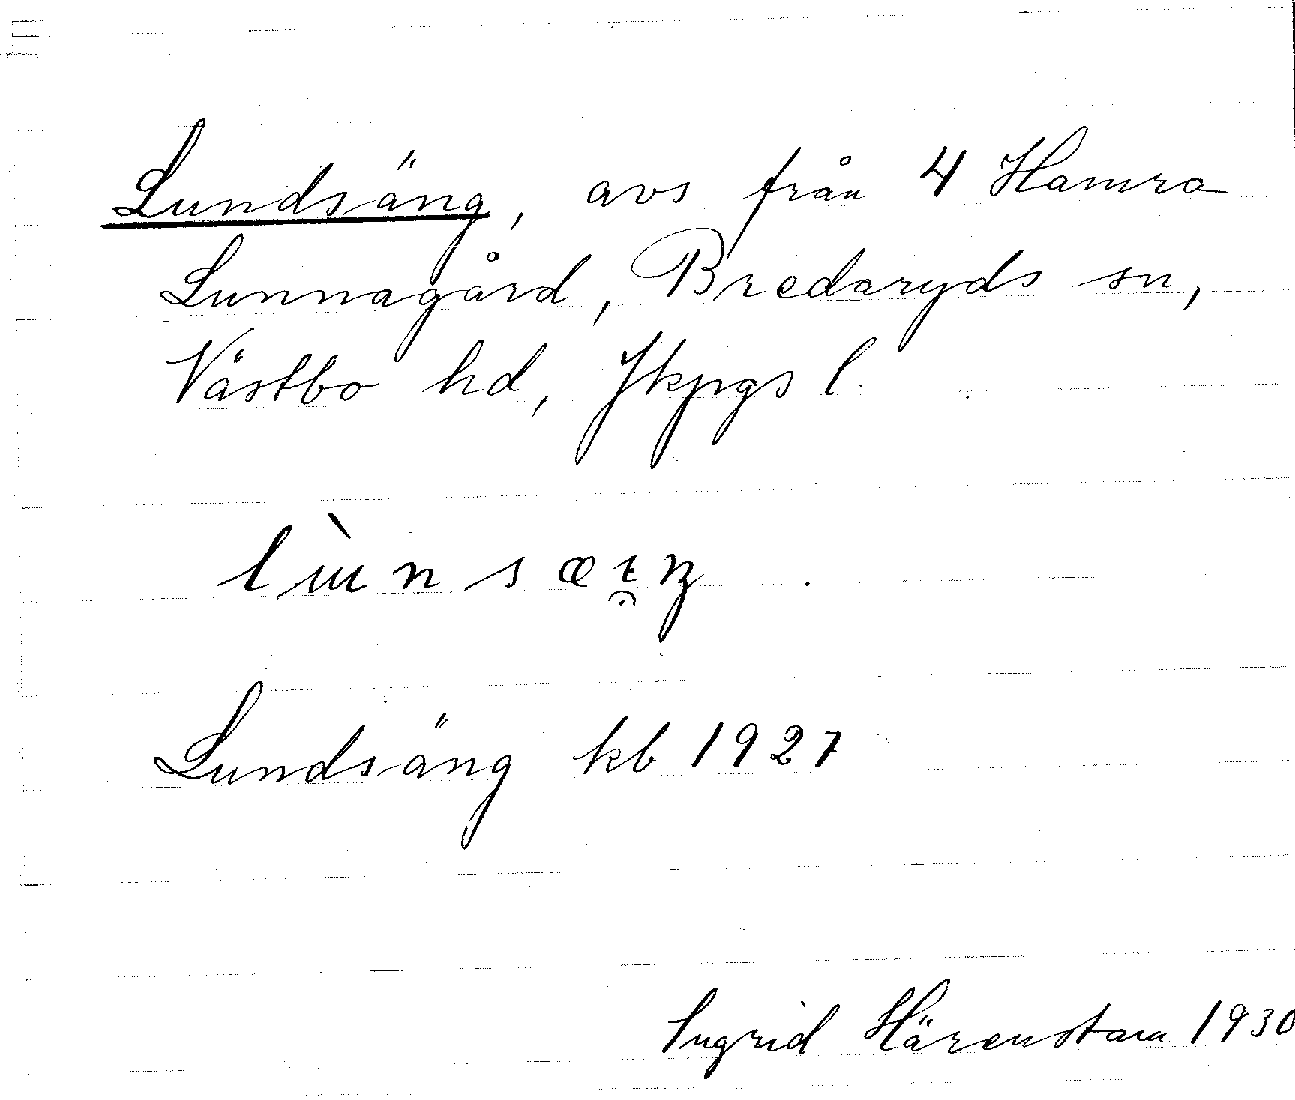 Lundsäng, avs från 4 Hamra
Lunnagård, Bredaryds sn,
Västbo hd, Jkpgs l.
Lundsäng kb 1927
Ingrid Härenstam 1930